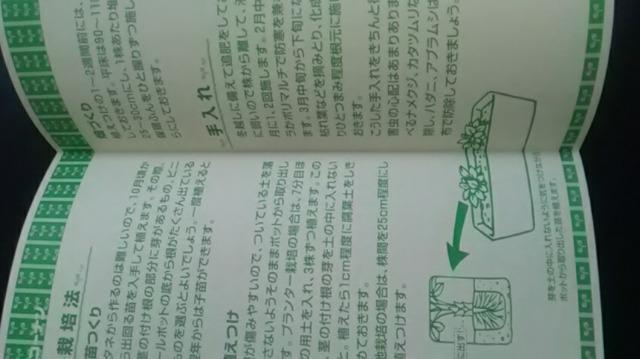 栽培法
苗つくり
タネから作るのは難しいので、10月頃か
ら出回る苗を入手して植えます。その際、
の付け根の部分に芽があるもの、ビニ
ールポットの底から根がたくさん出ている
ものを選ぶとよいでしょう。一度植えると
年からは子苗ができます。
植えつけ
が傷みやすいので、ついている土を落
さないようそのままポットから取り出し
ます。プランター栽培の場合は、7分目ほ
の用土を入れ、3株ずつ植えます。この
、葉の付け根の芽を土の中に入れない
、植えたら1cm程度に腐葉土をしき
めておきます。
地栽培の場合は、株間を25cm程度にし
植えつけます。
芽を土の中に入れないように気をつけながら
ポットから取り出した苗を植えます。
つくり
植えつけの1〜2週間前には、
しておきます。平床は90〜11
〜30cmにし、1株あたり堆
25をひと握りずつ施し
らにしておきます。
手入れ
を越した
に弱いので株から離して、
月に1、2回施します。2月中
らかポリマルチで防寒を兼
ます。3月中旬から下旬にな
枯れ葉などを摘みとり、化成
りひとつまみ程度根元に施
おきます。
こうした手入れをきちんと
害虫の心配はあまりありま
べるナメクジ、カタツムリな
除し、ハダニ、アブラムシは
布で防除しておきましょう。